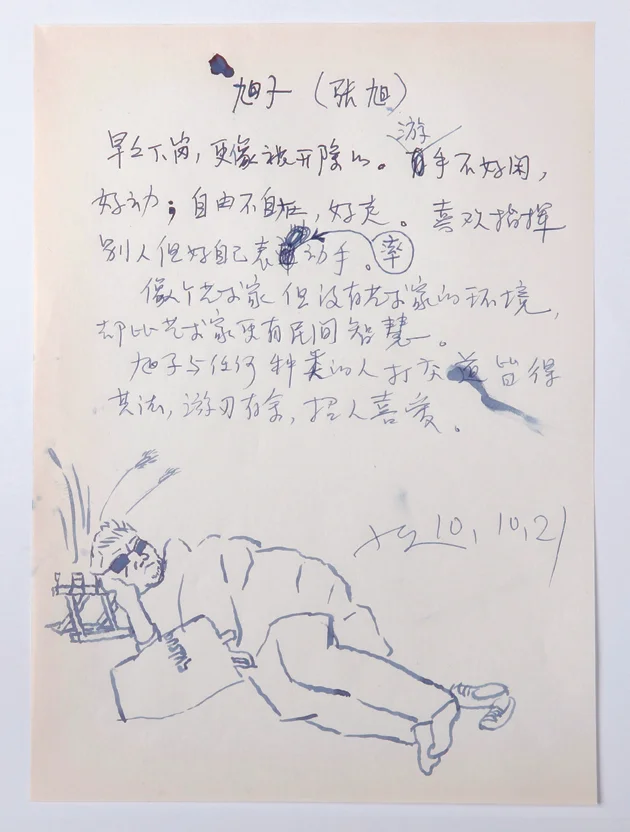 旭子（张旭）
早年下岗，更像被开除的。游手不好闲，
好动；自由不自在，好走。喜欢指挥
别人但好自己表率动手。
像个艺术家但没有艺术家的环境，
却比艺术家更有民间智慧。
旭子与任何种类的人打交道皆得
其法，游刃有余，招人喜爱。
10，10，21